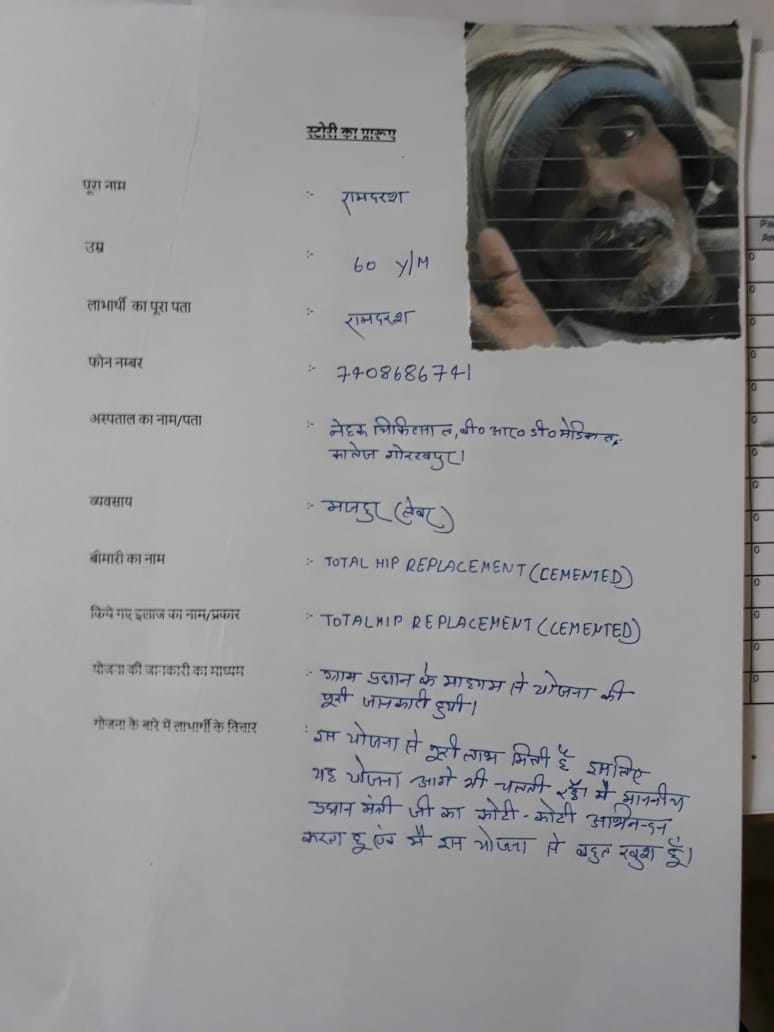 स्टोरी का प्रारूप
पूरा नाम :- रामदरश
उम्र :- 60 Y/M
लाभार्थी का पूरा पता :- रामदरश
फोन नम्बर :- 7408686741
अस्पताल का नाम/पता :- नेहरू चिकित्सालय, बी० आर० डी० मेडिकल
कालेज गोरखपुर।
व्यवसाय :- मजदुर (लेबर)
बीमारी का नाम :- TOTAL HIP REPLACEMENT (CEMENTED)
किये गए इलाज का नाम/प्रकार :- TOTAL HIP REPLACEMENT (CEMENTED)
योजना की जानकारी का माध्यम :- ग्राम प्रधान के माध्यम से योजना की
पूरी जानकारी हुयी।
योजना के बारे में लाभार्थी के विचार : इस योजना से पूरी लाभ मिली है इसलिए
यह योजना आगे भी चलती रहे। मै माननीय
प्रधान मंत्री जी का कोटी - कोटी अभिनन्दन
करता हू एवं मै इस योजना से बहुत खुश हूँ।